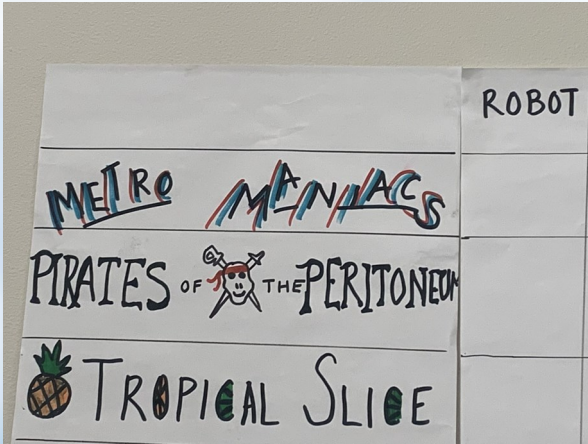 ROBOT
METRO MANIACS
PIRATES OF THE PERITONEUM
TROPICAL SLICE